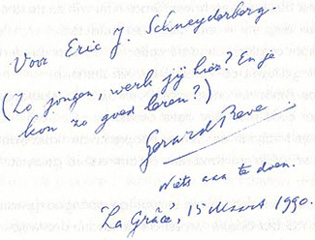 Voor Eric J. Schneyderberg.
(Zo jongen, werk jij hier? En je
kon zo goed leren?)
Gerard Reve
Niets aan te doen.
La Grâce, 15 Maart 1990.